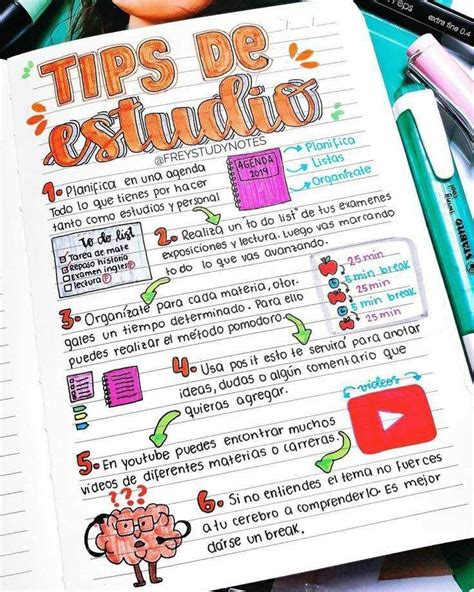 TIPS DE
estudio
@FREYSTUDYNOTES
1. Planifica en una agenda
Todo lo que tienes por hacer
tanto como estudios y personal
AGENDA
2019
Planifica
Listas
Organízate
to do list
Tarea de mate
Repaso historia
Examen ingles
lectura
2. Realiza un to do list" de tus examenes
exposiciones y lectura. Luego vas marcando
to do lo que vas avanzando.
3. Organízate para cada materia, otor.
gales un tiempo determinado. Para ello
puedes realizar el método pomodoro.
25 min
5 min break
25 min
5 min break
25 min
4. Usa pos it esto te servirá para anotar
ideas, dudas o algún comentario que
quieras agregar.
videos
5. En youtube puedes encontrar muchos
videos de diferentes materias o carreras.
6. Si no entiendes el tema no fuerces
a tu cerebro a comprenderlo. Es mejor
darse un break.
???
extra fine 0.4
STABILO